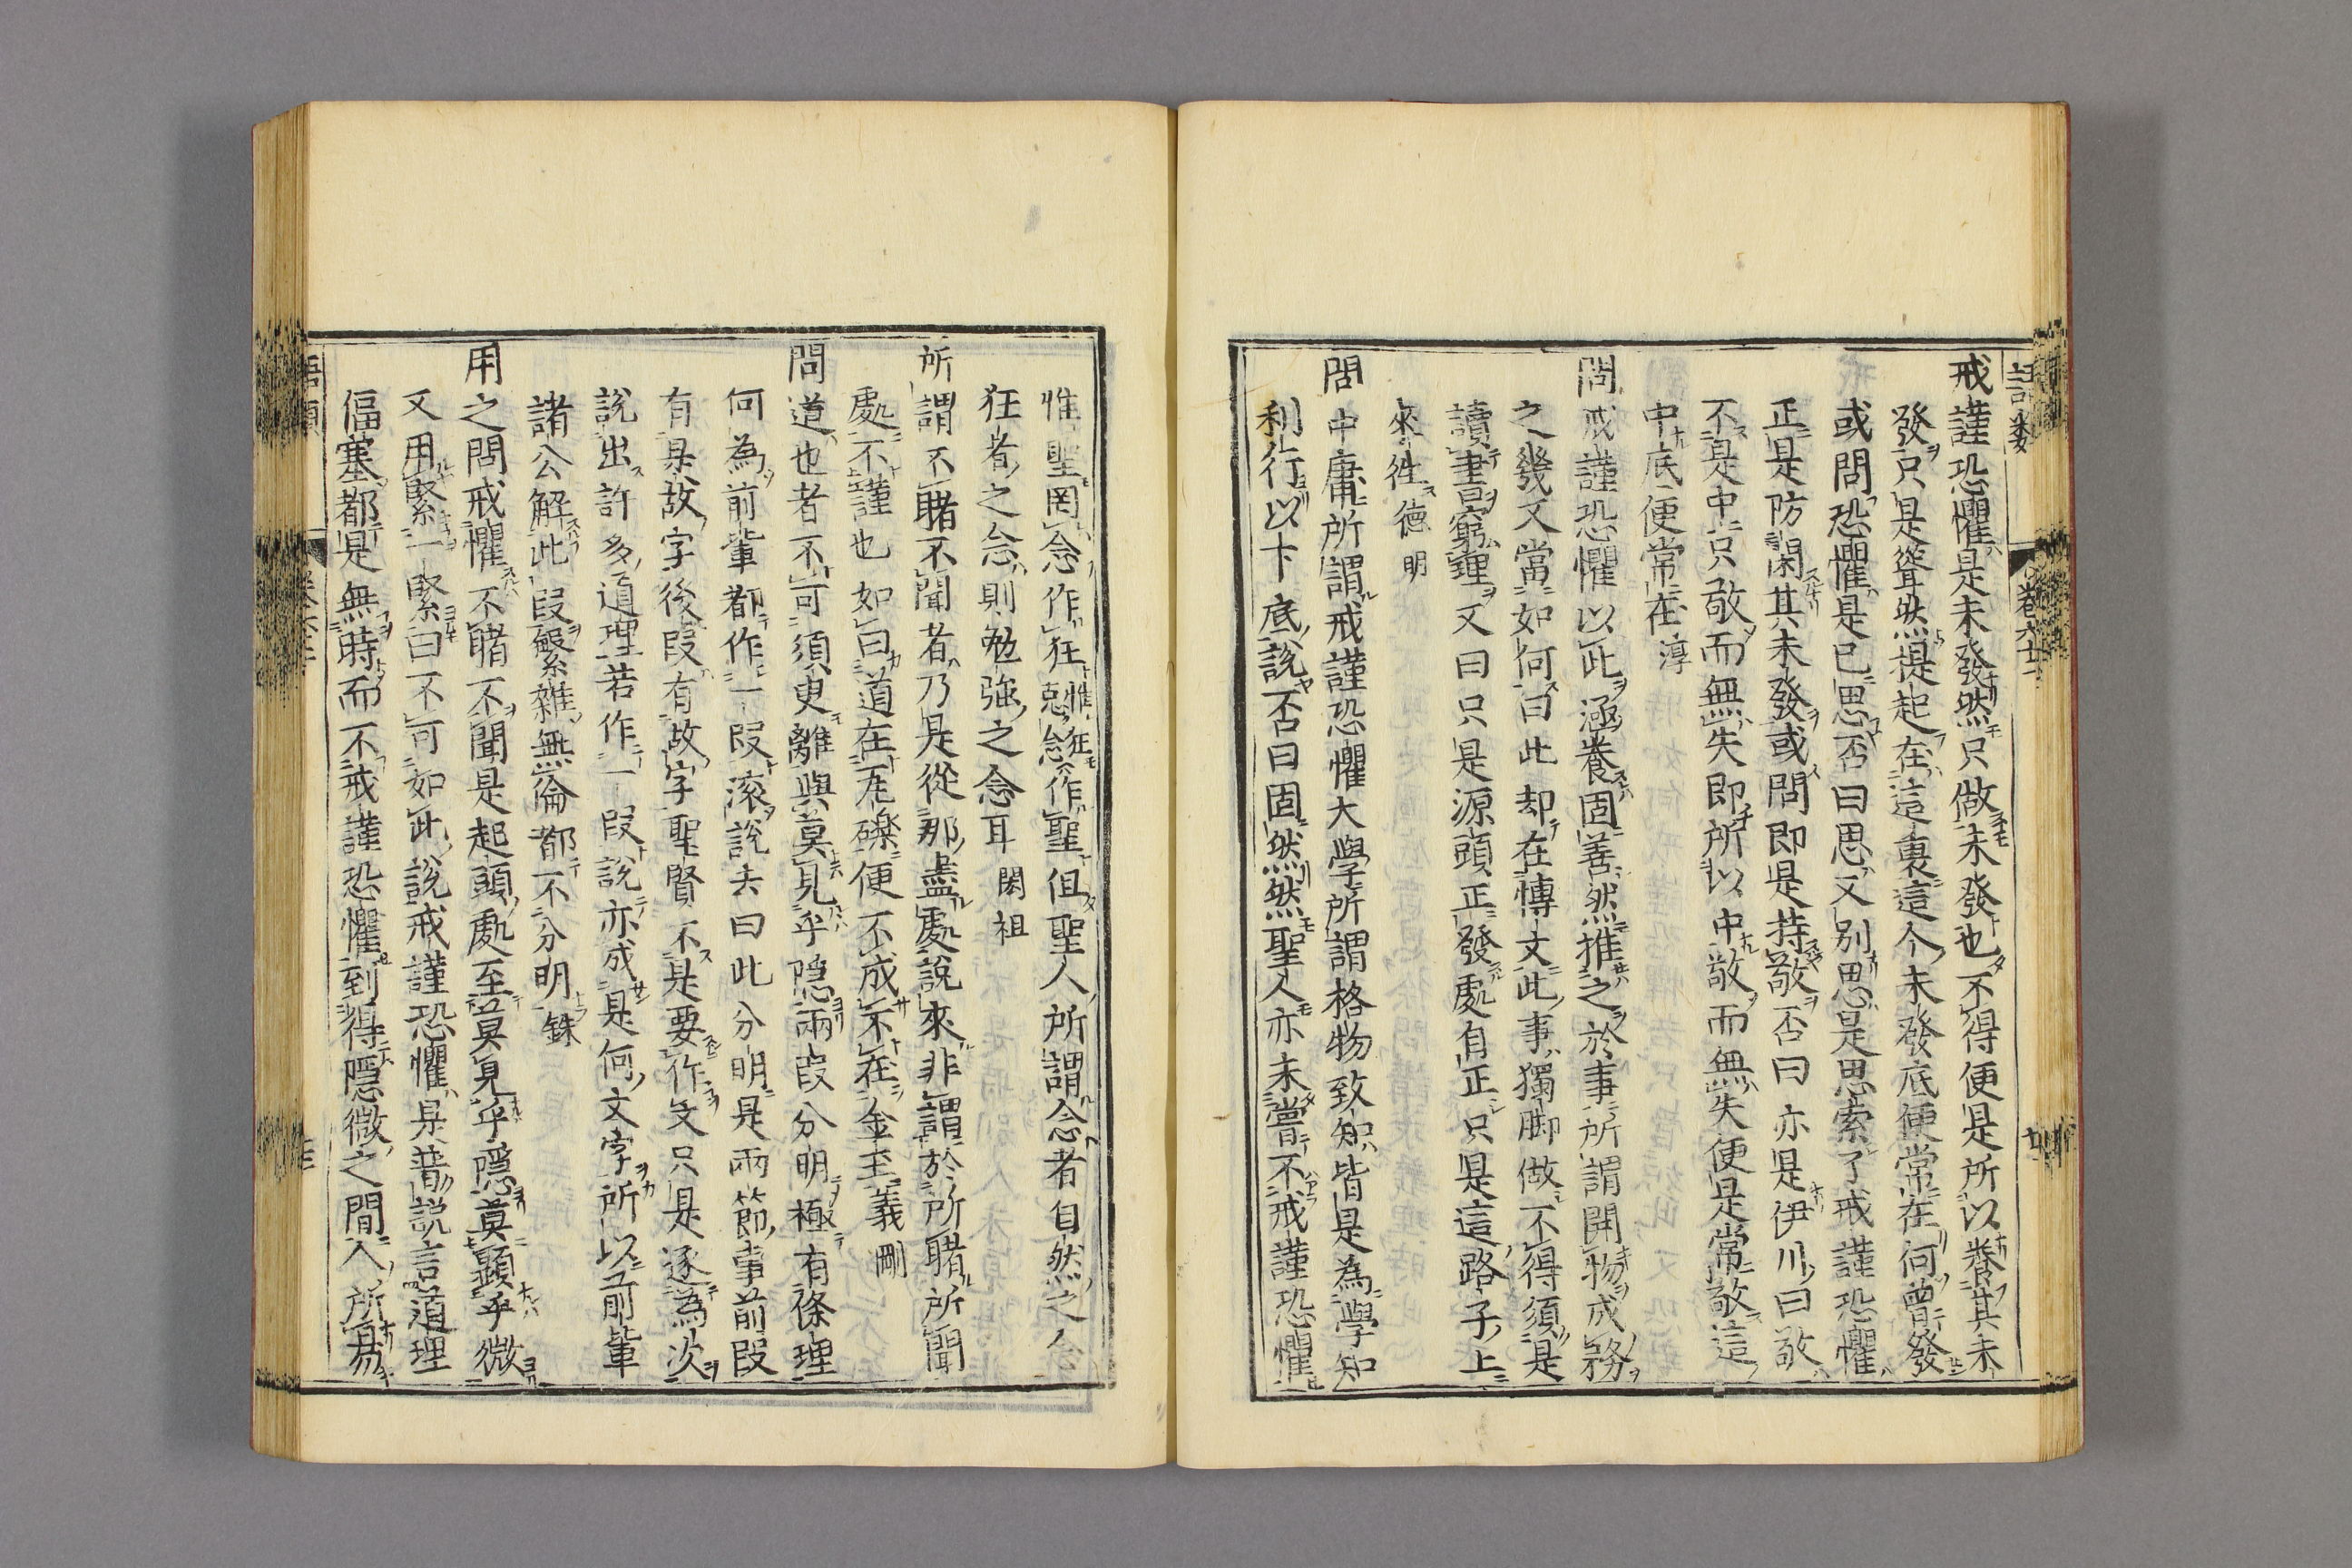 戒謹恐懼是未發然只做未發也不得便是所以養其未
發只是聳然提起在這裏這个未發底便常在何曾發
或問恐懼是已思否曰思又別思是思索了戒謹恐懼
正是防閑其未發或問即是持敬否曰亦是伊川曰敬
不是中只敬而無失即所以中敬而無失便是常敬這
中底便常在淳
問戒謹恐懼以此涵養固善然推之於事所謂開物成務
之幾又當如何曰此却在博文此事獨脚做不得須是
讀書窮理又曰只是源頭正發處自正只是這路子上
來徃德明
問中庸所謂戒謹恐懼大學所謂格物致知皆是為學知
利行以下底說否曰固然然聖人亦未嘗不戒謹恐懼
惟聖罔念作狂惟狂克念作聖但聖人所謂念者自然之念
狂者之念則勉強之念耳閎祖
所謂不睹不聞者乃是從那盡處說來非謂於所睹所聞
處不謹也如曰道在瓦礫便不成不在金玉義剛
問道也者不可須臾離與莫見乎隱兩段分明極有條理
何為前輩都作一段滾說去曰此分明是兩節事前段
有是故字後段有故字聖賢不是要作文只是逐為次
說出許多道理若作一段說亦成是何文字所以前輩
諸公解此段繁雜無倫都不分明銖
用之問戒懼不睹不聞是起頭處至莫見乎隱莫顯乎微
又用緊一緊曰不可如此說戒謹恐懼是普說言道理
偪塞都是無時而不戒謹恐懼到得隱微之間人所易